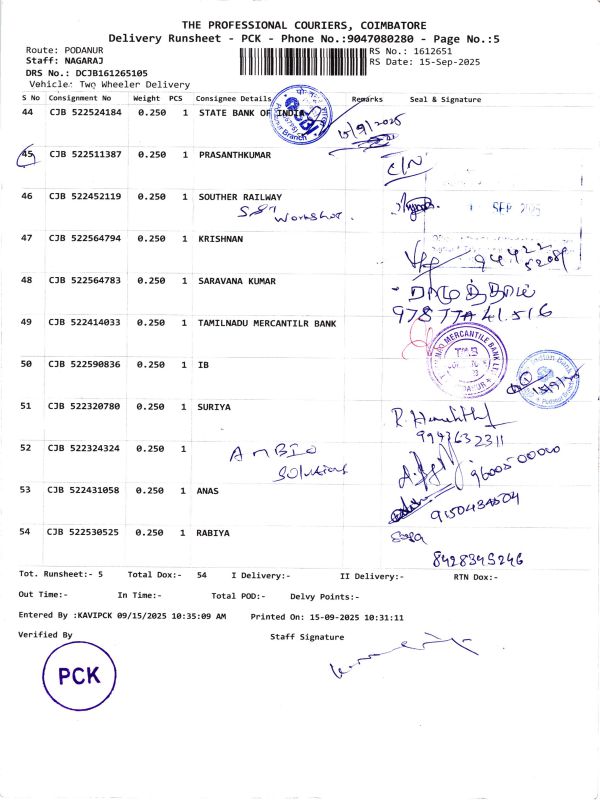 THE PROFESSIONAL COURIERS, COIMBATORE
Delivery Runsheet - PCK - Phone No.:9047080280 - Page No.:5
Route: PODANUR
RS No.: 1612651
Staff: NAGARAJ
RS Date: 15-Sep-2025
DRS No.: DCJB161265105
Vehicle: Two Wheeler Delivery
S No Consignment No Weight PCS Consignee Details Remarks Seal & Signature
44 CJB 522524184 0.250 1 STATE BANK OF INDIA
SBI
Branch
15/9/2025
45 CJB 522511387 0.250 1 PRASANTHKUMAR
C/N
46 CJB 522452119 0.250 1 SOUTHER RAILWAY
S&T Workshop.
SEP 2025
47 CJB 522564794 0.250 1 KRISHNAN
94422
52081
48 CJB 522564783 0.250 1 SARAVANA KUMAR
49 CJB 522414033 0.250 1 TAMILNADU MERCANTILR BANK
MERCANTILE BANK
TMB
50 CJB 522590836 0.250 1 IB
Indian Bank
15/9/25
51 CJB 522320780 0.250 1 SURIYA
9947632311
52 CJB 522324324 0.250 1
AMBIO
Solutions
9600500000
53 CJB 522431058 0.250 1 ANAS
9150434504
54 CJB 522530525 0.250 1 RABIYA
8428345246
Tot. Runsheet:- 5 Total Dox:- 54 I Delivery:- II Delivery:- RTN Dox:-
Out Time:- In Time:- Total POD:- Delvy Points:-
Entered By :KAVIPCK 09/15/2025 10:35:09 AM Printed On: 15-09-2025 10:31:11
Verified By Staff Signature
PCK